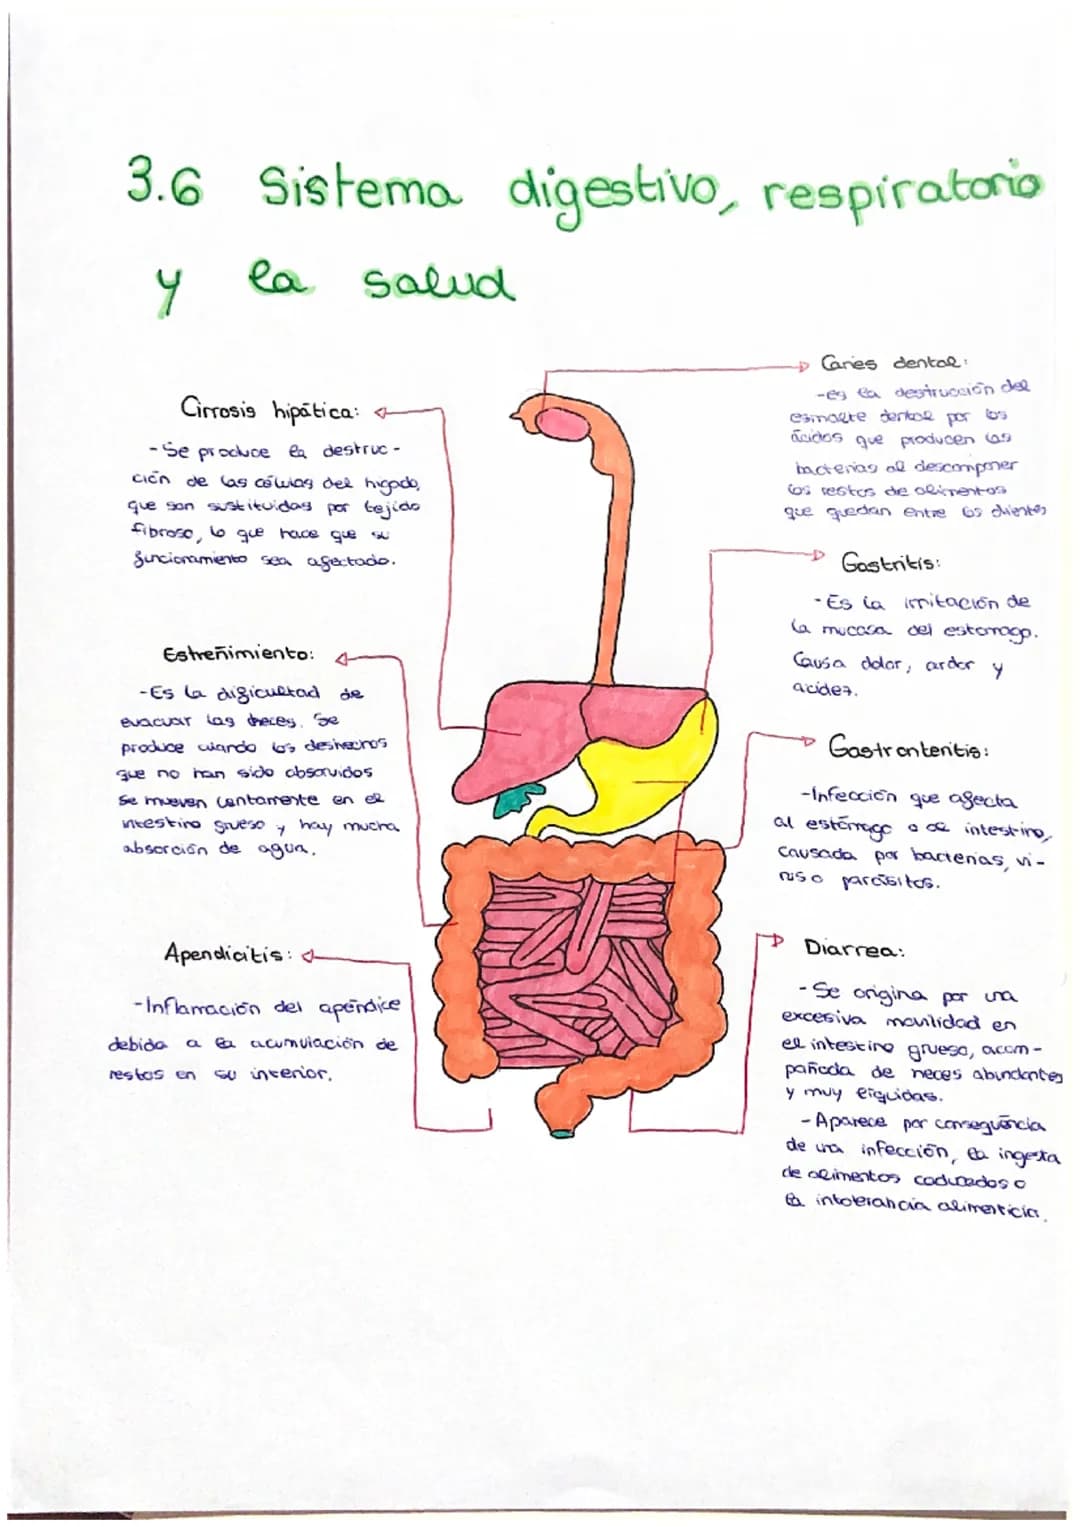 3.6 Sistema digestivo, respiratorio
y la salud
Cirrosis hipática:
-Se produce la destruc-
ción de las células del hígado,
que son sustituidas por tejido
fibroso, lo que hace que su
funcionamiento sea afectado.
Estreñimiento:
-Es la dificultad de
evacuar las heces. Se
produce cuando los deshechos
que no han sido absorvidos
se mueven lentamente en el
intestino grueso y hay mucha
absorción de agua.
Apendicitis:
-Inflamación del apéndice
debida a la acumulación de
restos en su interior.
Caries dental:
-es la destrucción del
esmalte dental por los
ácidos que producen las
bacterias al descomponer
los restos de alimentos
que quedan entre los dientes
Gastritis:
-Es la irritación de
la mucosa del estomago.
Causa dolor, ardor y
acidez.
Gastronteritis:
-Infección que afecta
al estómago o al intestino,
causada por bacterias, vi-
rus o parásitos.
Diarrea:
-Se origina por una
excesiva movilidad en
el intestino grueso, acom-
pañada de heces abundantes
y muy líquidas.
-Aparece por consequéncia
de una infección, la ingesta
de alimentos caducados o
la intolerancia alimenticia.